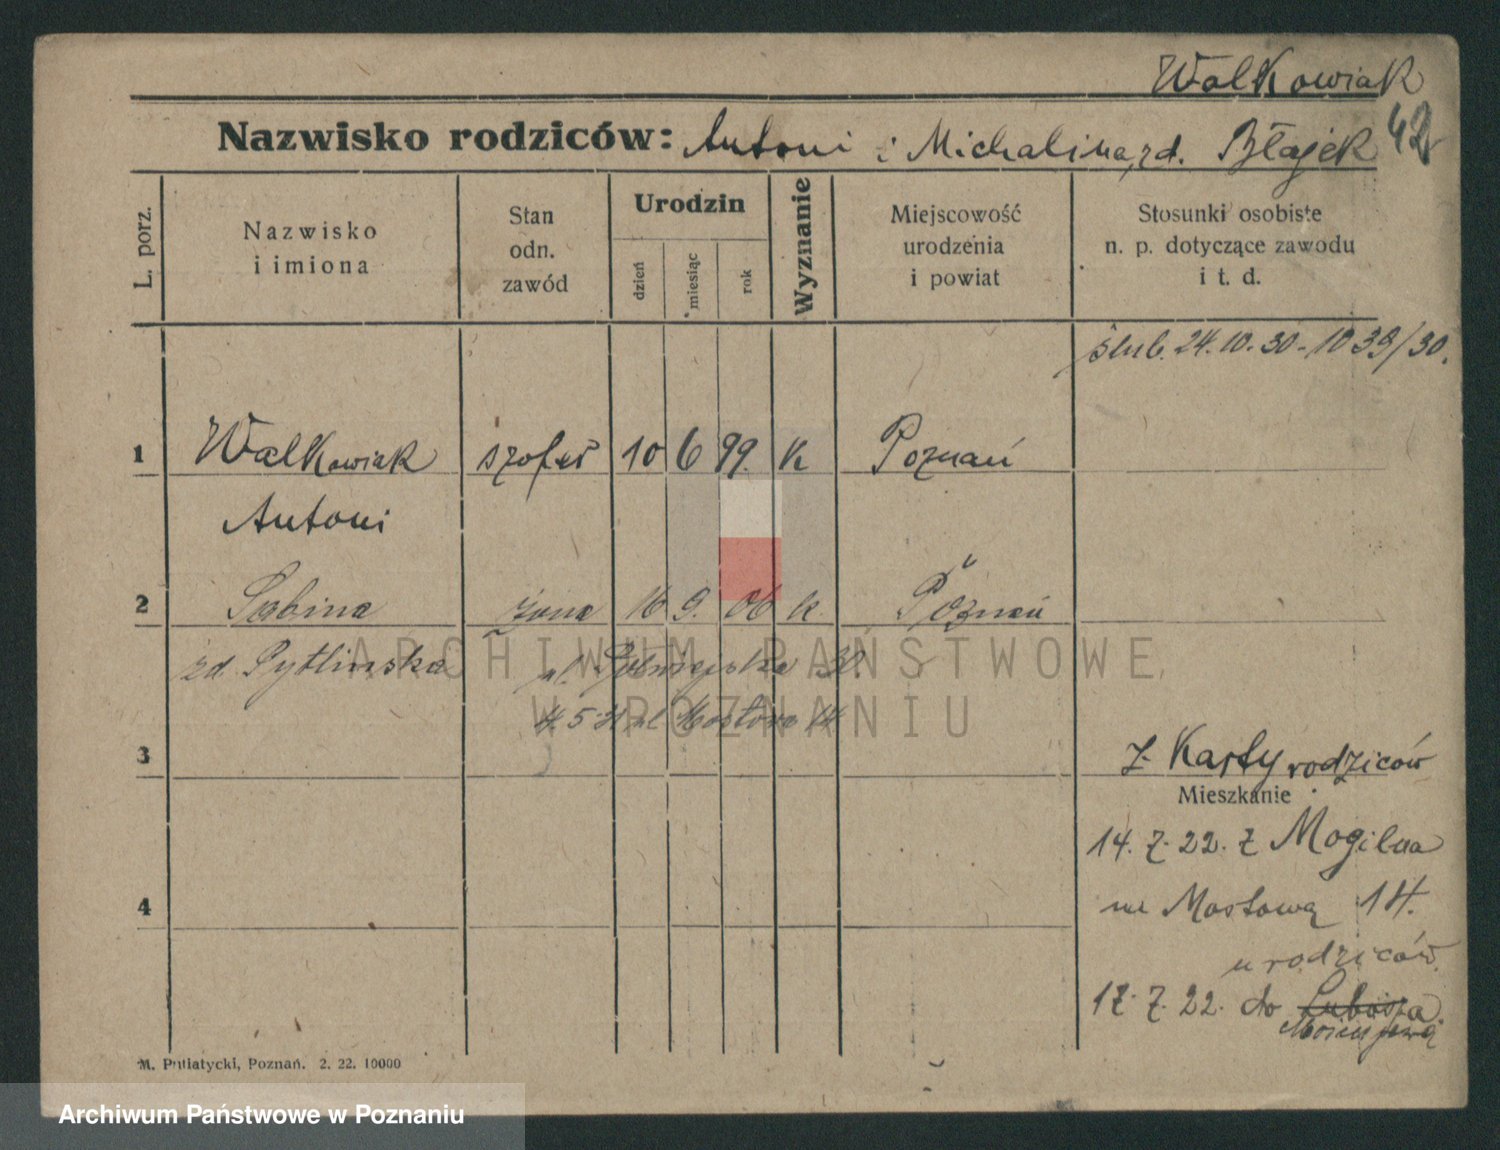 Walkowiak
Nazwisko rodziców: Antoni i Michalina, zd. Błajek 42
L. porz.
Nazwisko
i imiona
Stan
odn.
zawód
Urodzin
dzień
miesiąc
rok
Wyznanie
Miejscowość
urodzenia
i powiat
Stosunki osobiste
n. p. dotyczące zawodu
i t. d.
ślub. 24.10.30 - 1039/30.
1 Walkowiak szofer 10 6 99. K Poznań
Antoni
2 Sabina żona 16 9. 06 k. Poznań
zd. Pytlinska ul. Półwiejska 30.
ul. Mostowa 14
3 z Karty rodziców
Mieszkanie
14. 7. 22. z Mogilna
na Mostową 14.
4
u rodziców.
17. 7. 22. do
M. Putiatycki, Poznań. 2. 22. 10000
ARCHIWUM PAŃSTWOWE
W POZNANIU
Archiwum Państwowe w Poznaniu